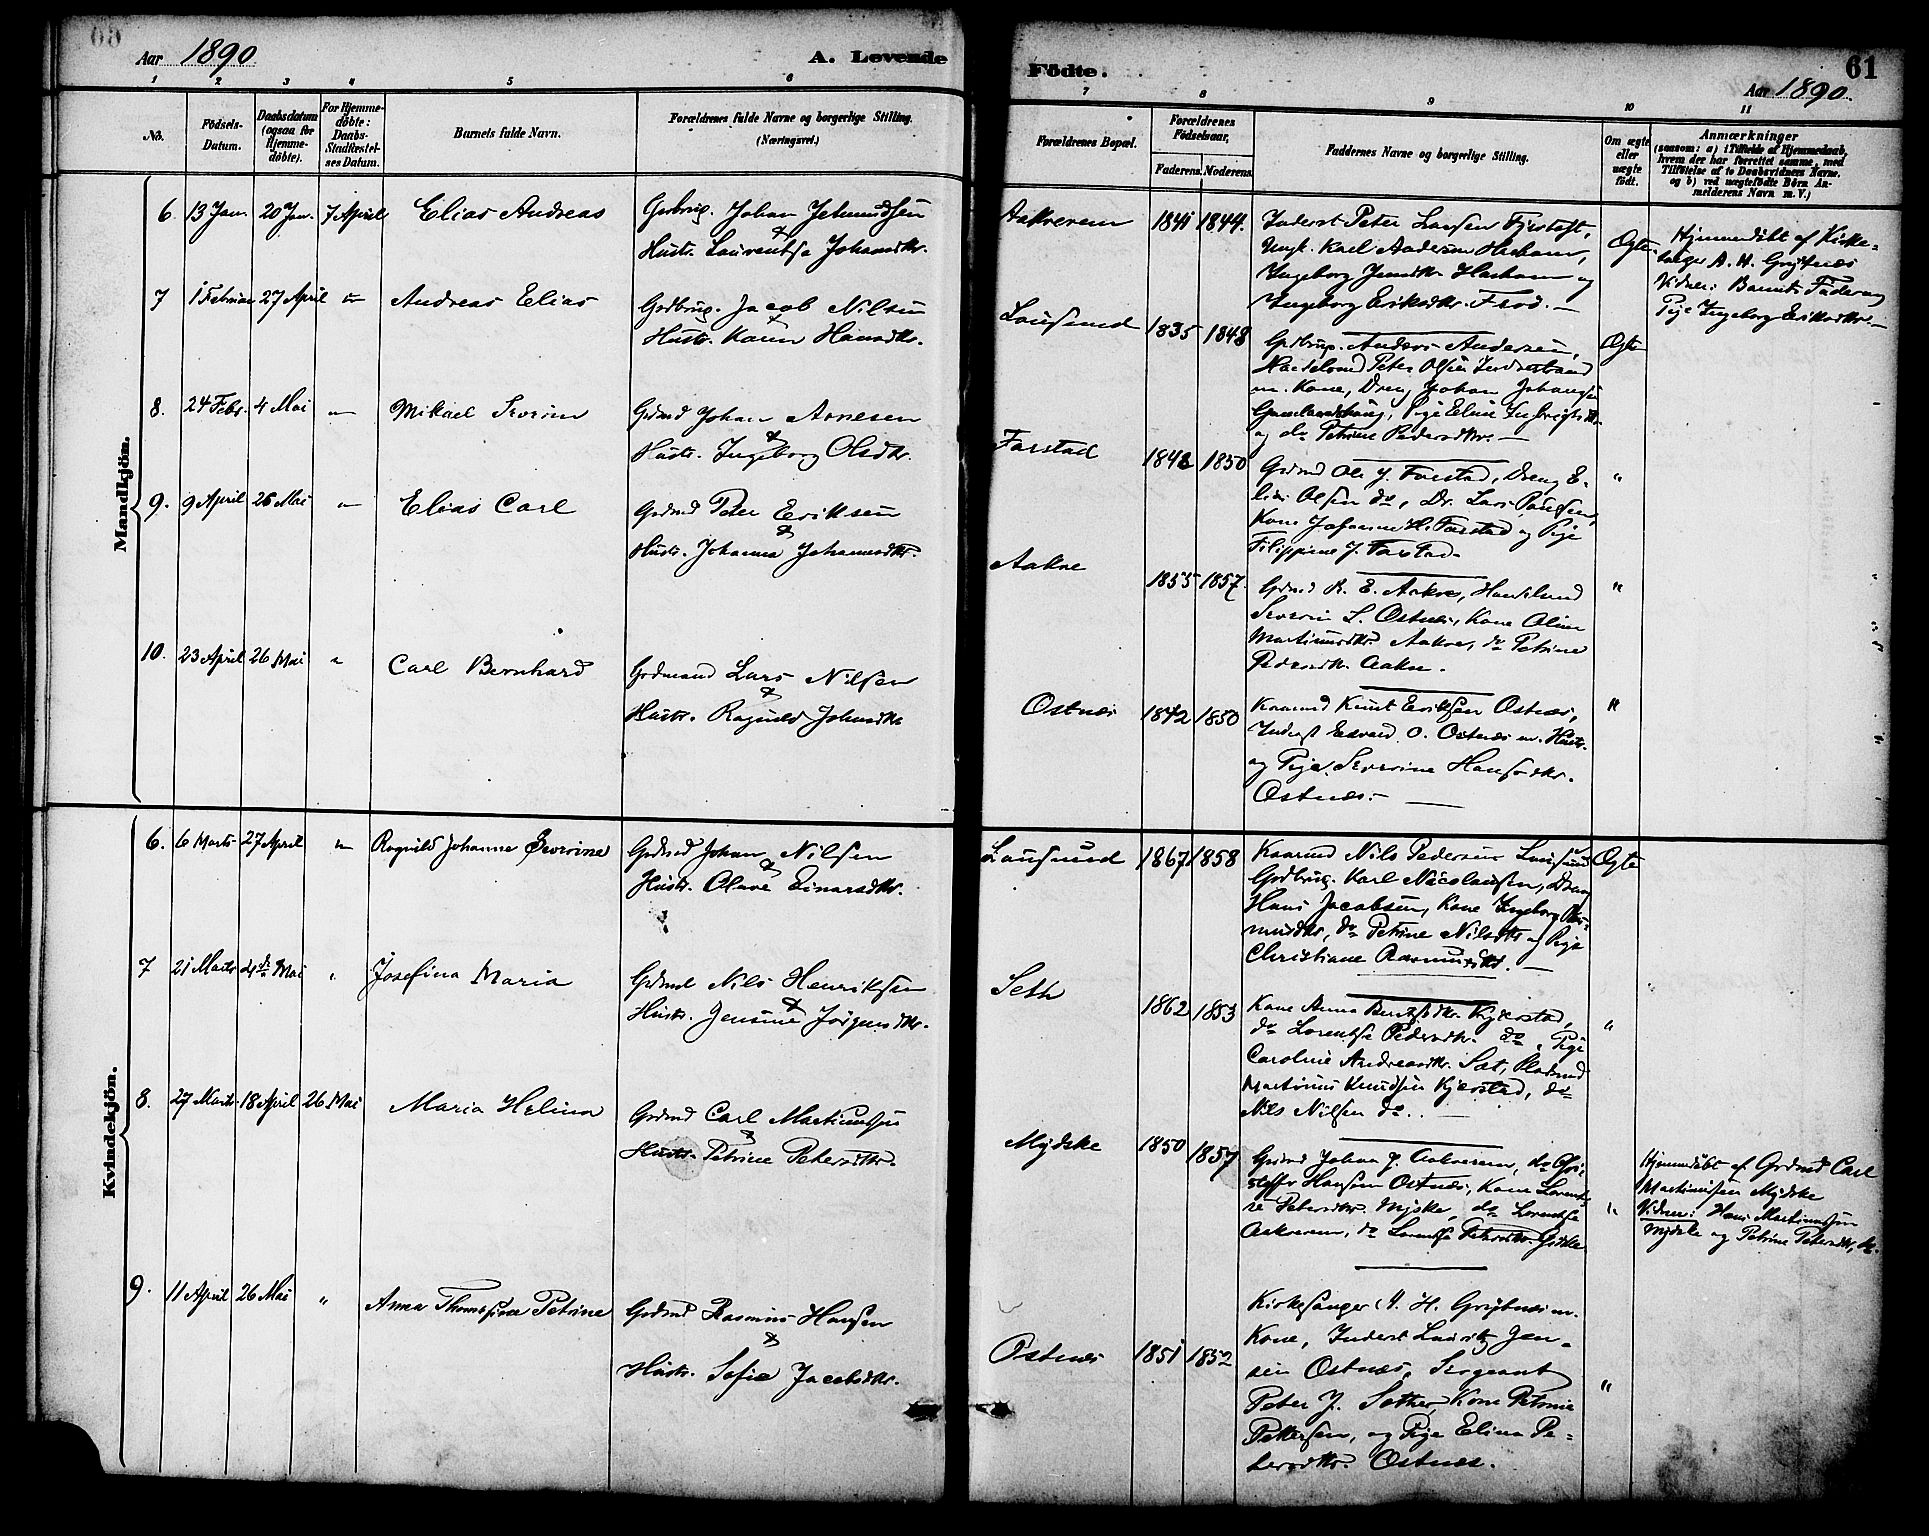 Aar 1890
A. Levende
Födte.
61
Aar 1890.
1 2 3 4 5 6 7 8 9 10 11
No.
Födsels-
Datum.
Daabsdatum
(ogsaa for
Hjemme-
döbte).
For Hjemme-
döbte:
Daabs-
Stadfæstel-
ses Datum.
Barnets fulde Navn.
Forældrenes fulde Navne og borgerlige Stilling.
(Næringsvei.)
Forældrenes Bopæl.
Forældrenes
Födselsaar,
Faderens. Moderens.
Faddernes Navne og borgerlige Stilling.
Om ægte
eller
uægte
födt.
Anmærkninger
(saasom: a) i Tilfælde af Hjemmedaab,
hvem der har forrettet samme, med
Tilföielse af to Daabsvidners Navne,
og b) ved uægtefödte Börn An-
melderens Navn m. V.)
Mandkjön.
6. 13 Jan. 20 Jan. 7 April Elias Andreas
Gerbrug. Johan Jetmundsen
&
Hustr. Laurentse Johansdtr.
Aakverem 1841 1844.
Inderst Peter Larsen Fjörtoft,
Ungk. Karl Andersen Hasham,
Ingeborg Jensdtr. Hasham og
Ingeborg Eriksdtr. Frod. —
Ægte
Hjemmedöbt af Kirke-
sanger A. H. Grytnæs
Vidner: Barnets Fader og
Pige Ingeborg Eriksdtr. —
7 1 Februar 27 April " Andreas Elias
Grdbrug. Jacob Nilsen
&
Hustr. Karen Hansdtr.
Lausund 1835 1848
Grdbrug. Anders Andersen,
Handelsmd Peter Olsen
m. Kone, Dreng Johan Johansen
Pige Eline
og do Petrine Pedersdtr. —
Ægte
8. 24 Febr. 4 Mai " Mikael Severin
Grdmd Johan Arnesen
&
Hustr. Ingeborg Olsdtr.
Farstad 1848 1850
Grdmd Ole J. Farstad, Dreng E-
lias Olsen do, Dr. Lars Paulsen,
Kone Johanne H. Farstad og Pige
Filippine J. Farstad.
"
9. 9 April 26 Mai " Elias Carl
Grdmd Peter Eriksen
&
Hustr. Johanna Johannesdtr.
Aakre 1855 1857.
Grdmd R. E. Aakre, Handelsmd
Severin L. Ostnæs, Kone Oline
Martinusdtr. Aakre, do Petrine
Pedersdtr. Aakre.
"
10. 23 April 26 Mai " Carl Bernhard
Grdmand Lars Nilsen
&
Hustr. Ragnild Johnsdtr
Ostnæs 1842 1850
Kaarmd Knut Eriksen Ostnæs,
Inderst Edvard O. Ostnæs m. Hustr.
og Pige Severine Hansdtr.
Ostnæs. —
"
Kvindekjön.
6. 6 Marts 27 April " Ragnild Johanna Severine
Grdmd Johan Nilsen
&
Hustr. Olave Einarsdtr.
Lausund 1867 1858
Kaarmd Nils Pedersen Lausund
Grdbrug. Karl Nicolausen, Dreng
Hans Jacobsen, Kone Ingeborg Ras-
musdtr, do Petrine Nilsdtr og Pige
Christiane Rasmusdtr. —
Ægte
7 21 Marts 4de Mai " Josefina Maria
Grdmd Nils Henriksen
&
Hustr. Jensine Jörgensdtr.
Seth 1862 1853
Kone Anna Berthsdtr. Kjerstad,
do Lorentse Pedersdtr. do, Pige
Caroline Andreasdtr. Sæt, Pladsmd
Martinus Knudsen Kjerstad, do
Nils Nilsen do. —
"
8. 27 Marts 18 April 26 Mai Maria Helina
Grdmd Carl Martinussen
&
Hustr. Petrine Petersdtr.
Mydske 1850 1857
Grdmd Johan J. Aakverem, do Chri-
stoffer Hansen Ostnæs, Kone Lorent-
se Petersdtr. Myske, do Lorentse
Aakverem, do Lorentse Petersdtr. Giske
"
Hjemmedöbt af Grdmd Carl
Martinussen Mydske
Vidner: Hans Martinussen
Mydske og Petrine Petersdtr, do.
9. 11 April 26 Mai " Anna Thomassine Petrine
Grdmd Rasmus Hansen
&
Hustr. Sofie Jacobsdtr.
Ostnæs 1851 1852
Kirkesanger A. H. Grytnæs m.
Kone, Inderst Lauritz Jen-
sen Ostnæs, Sergeant
Peter J. Sæther, Kone Petrine
Pettersen, og Pige Elina Pe-
tersdtr. Ostnæs.
"